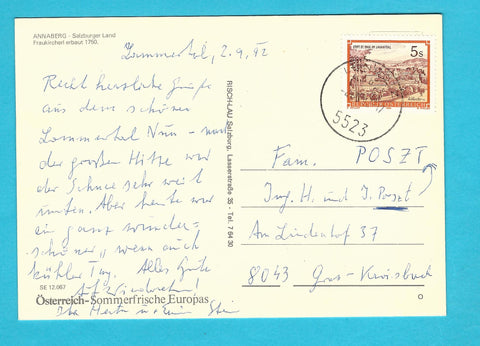 ANNABERG - Salzburger Land
Fraukircherl erbaut 1750.
Lammertal, 2.9.92
Recht herzliche Grüße
aus dem schönen
Lammertal Nun - nach
der großen Hitze war
der Schnee sehr weit
unten. Aber heute war
ein ganz wunder-
schöner, wenn auch
kühler Tag. Alles Gute
Auf Wiedersehen!
Herta u.
SE 12.067
Österreich-Sommerfrische Europas
RISCHLAU Salzburg, Lasserstraße 35 - Tel. 7 64 30
5s
STIFT ST. PAUL IM LAVANTTAL
REPUBLIK ÖSTERREICH
5523
Fam. POSZT
Ing. H. und J. Poszt
Am Lindenhof 37
8043 Graz-Kroisbach